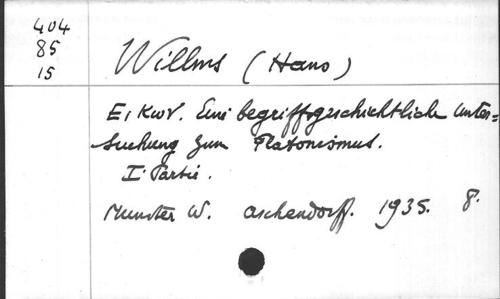 404
85
15
Willms (Hans)
Εἰκών. Eine begriffsgeschichtliche Unter=
suchung zum Platonismus.
I. Partie.
Munster W. Aschendorff. 1935. 8°.